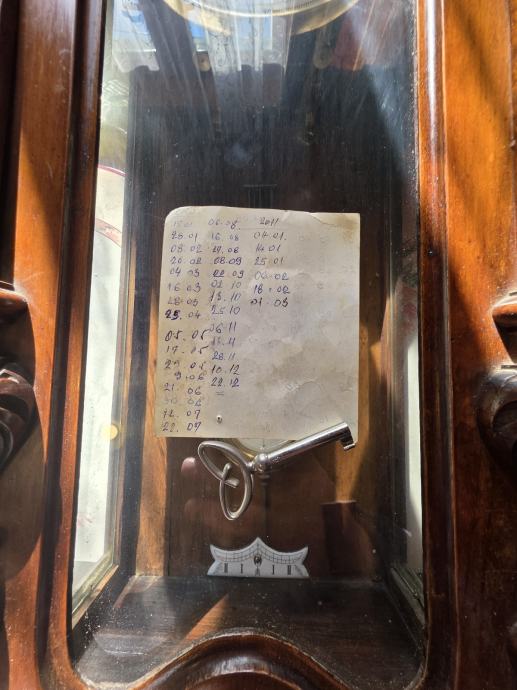 06.08 2011
20.01 16.08 04.01.
08.02 27.08 14.01
20.02 08.09 25.01
04.03 22.09 06.02
16.03 02.10 18.02
28.03 13.10 01.03
25.04 25.10
05.05 06.11
17.05
29.05 28.11
9.06 10.12
21.06 22.12
=
12.07
22.07